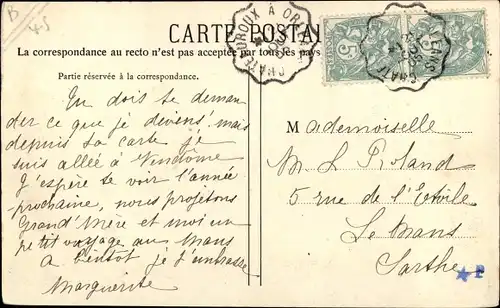 B
45
CARTE POSTALE
La correspondance au recto n'est pas acceptée par tous les pays
Partie réservée à la correspondance.
CHATEAUROUX À ORLEANS
5
5
On doit se deman
der ce que je deviens, mais
depuis ta carte je
suis allée à Vendôme
J'espère te voir l'année
prochaine, nous projetons
Grand'Mère et moi un
petit voyage au Mans
A bientôt je t'embrasse
Marguerite
Mademoiselle
M. L Roland
5 rue de l'Etoile
Le Mans
Sarthe